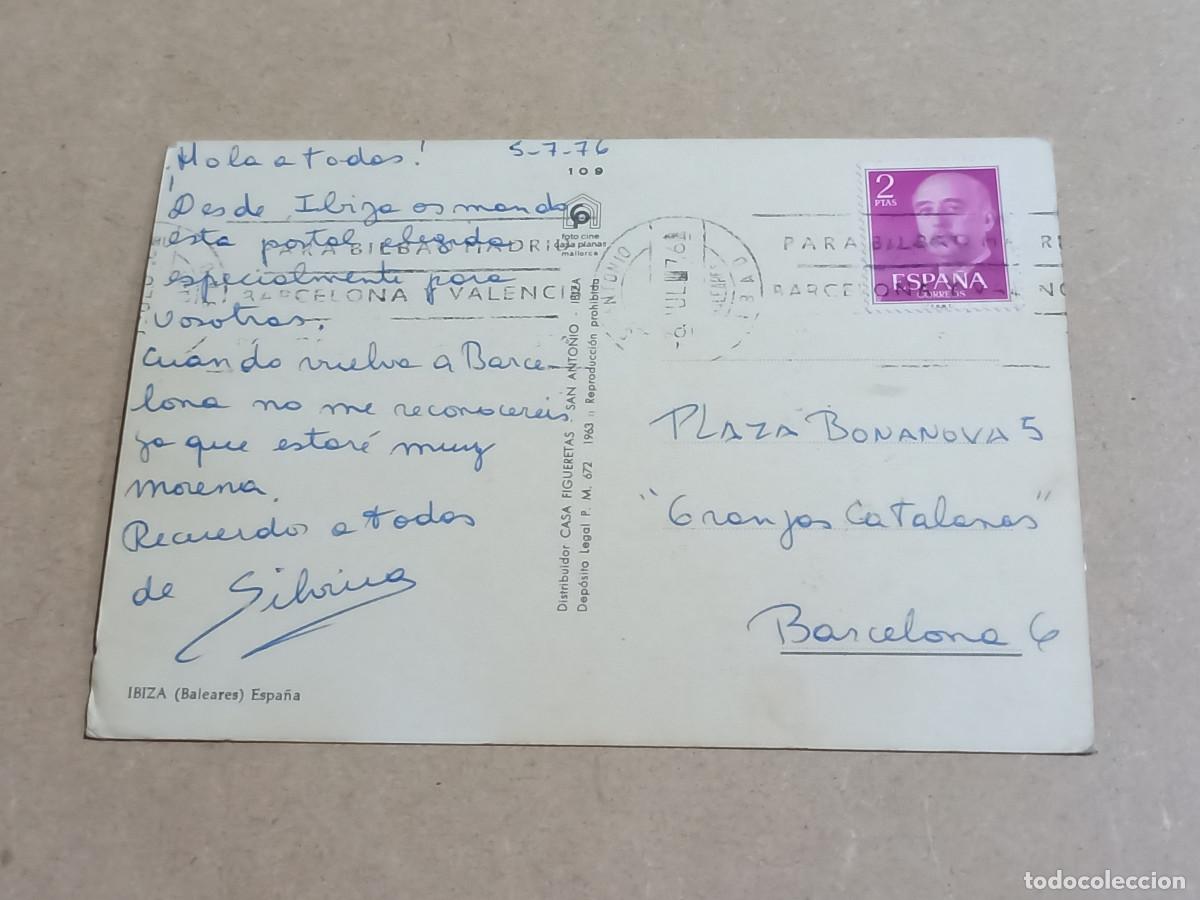 ¡Hola a todos!
5-7-76
109
Desde Ibiza os mando
esta postal elegida
especialmente para
vosotros.
Cuándo vuelva a Barce-
lona no me reconoceréis
ya que estaré muy
morena.
Recuerdos a todos
de Silvia
IBIZA (Baleares) España
foto cine
casa planas
mallorca
Distribuidor CASA FIGUERETAS - SAN ANTONIO - IBIZA
Depósito Legal P. M. 672 1963 :: Reproducción prohibida
PARA BILBAO MADRID
BARCELONA Y VALENCIA
ANTONIO
JUL 76
BALEARES
PARA BILBAO MA
BARCELONA
2
PTAS
ESPAÑA
CORREOS
PLAZA BONANOVA 5
"Granjas Catalanas"
Barcelona 6
todocoleccion